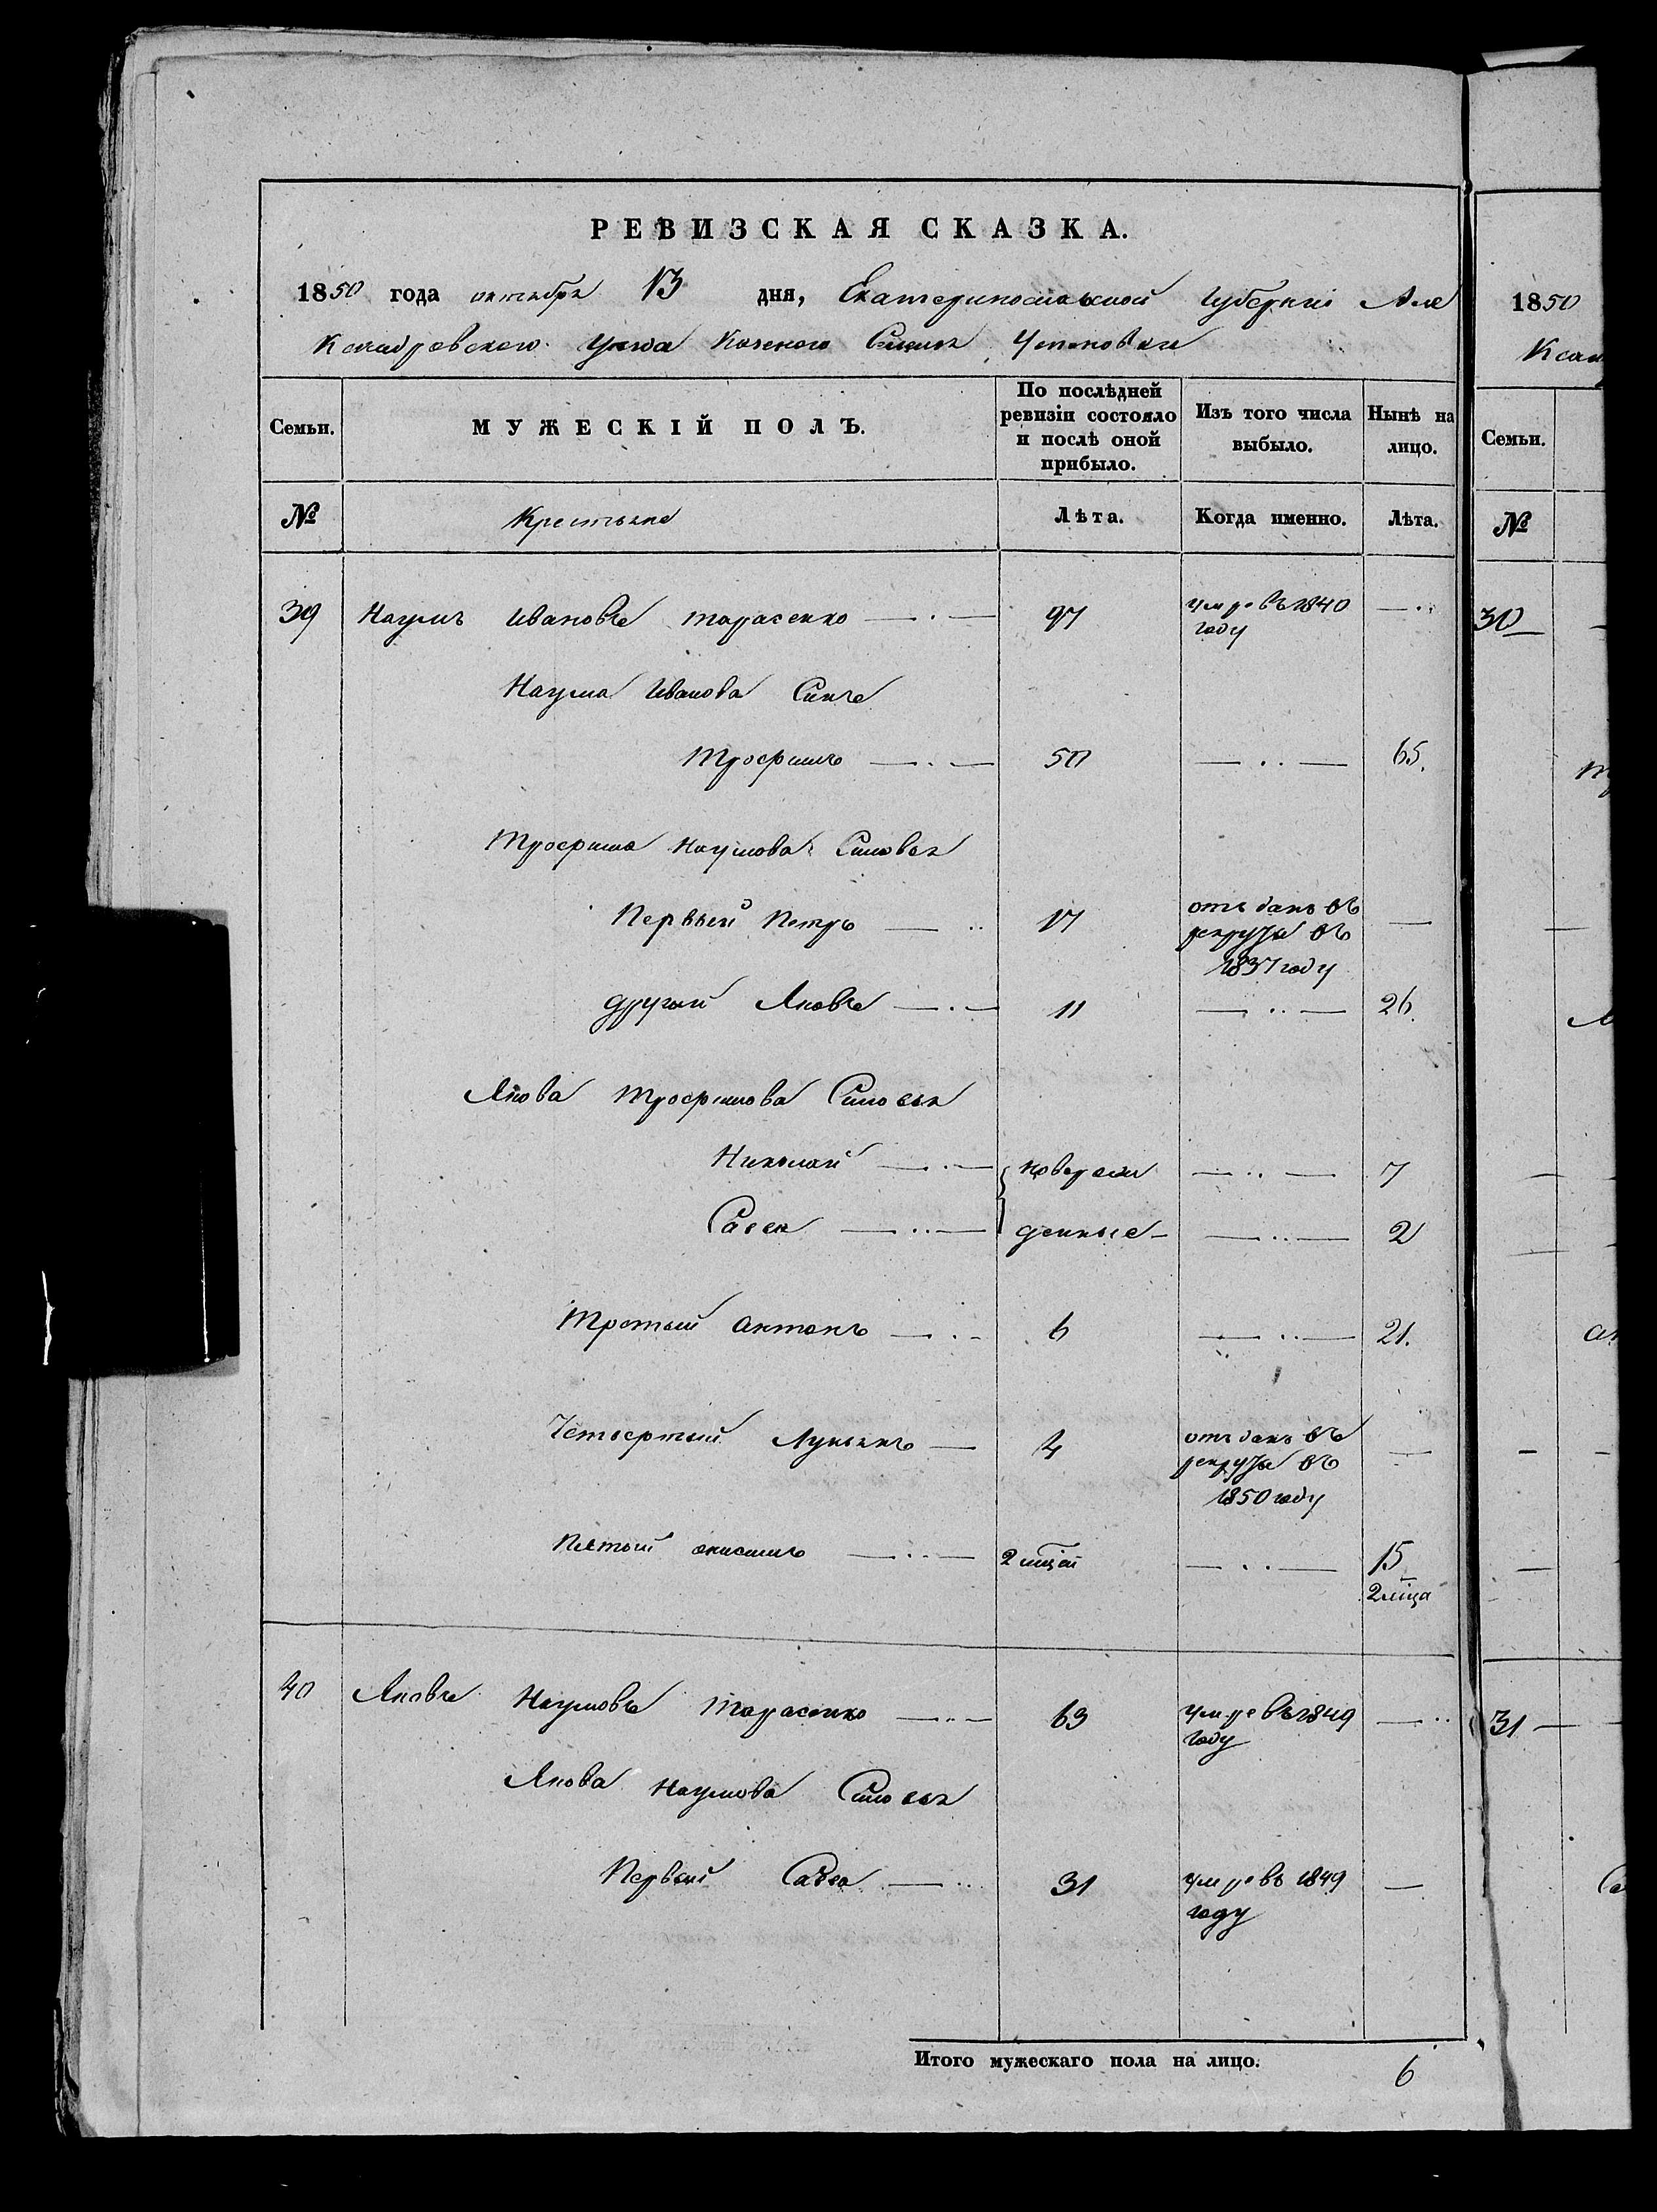 РЕВИЗСКАЯ СКАЗКА.
1850 года октября 13 дня, Екатеринославской Губернiи Але
ксандровскаго Уезда Казеного Селенія
Семьи. МУЖЕСКІЙ ПОЛЪ. По послѣдней ревизіи состояло и послѣ оной прибыло. Изъ того числа выбыло. Нынѣ на лицо.
№ Крестьяне Лѣта. Когда именно. Лѣта.
39 Наумъ Ивановъ Тарасенко 97 умре въ 1840 году
Наума Иванова Синъ
Трофимъ 50 65.
Трофима Наумова Синовья
Первый Петръ 17 отъ данъ въ рекруты въ 1837 году
другий Яковъ 11 26.
Якова Трофимова Синовья
Николай новораж 7
Савка денные 2
Третый Антонъ 6 21.
Четвертый Лукьянъ 4 отъ данъ въ рекруты въ 1850 году
Пятый Анисимъ 2 мцей 15
2 мца
40 Яковъ Наумовъ Тарасенко 63 умре въ 1849 году
Якова Наумова Синовья
Первый Савва 31 умре въ 1849 году
Итого мужескаго пола на лицо. 6
1850
Ксан
Семьи.
№
30
31